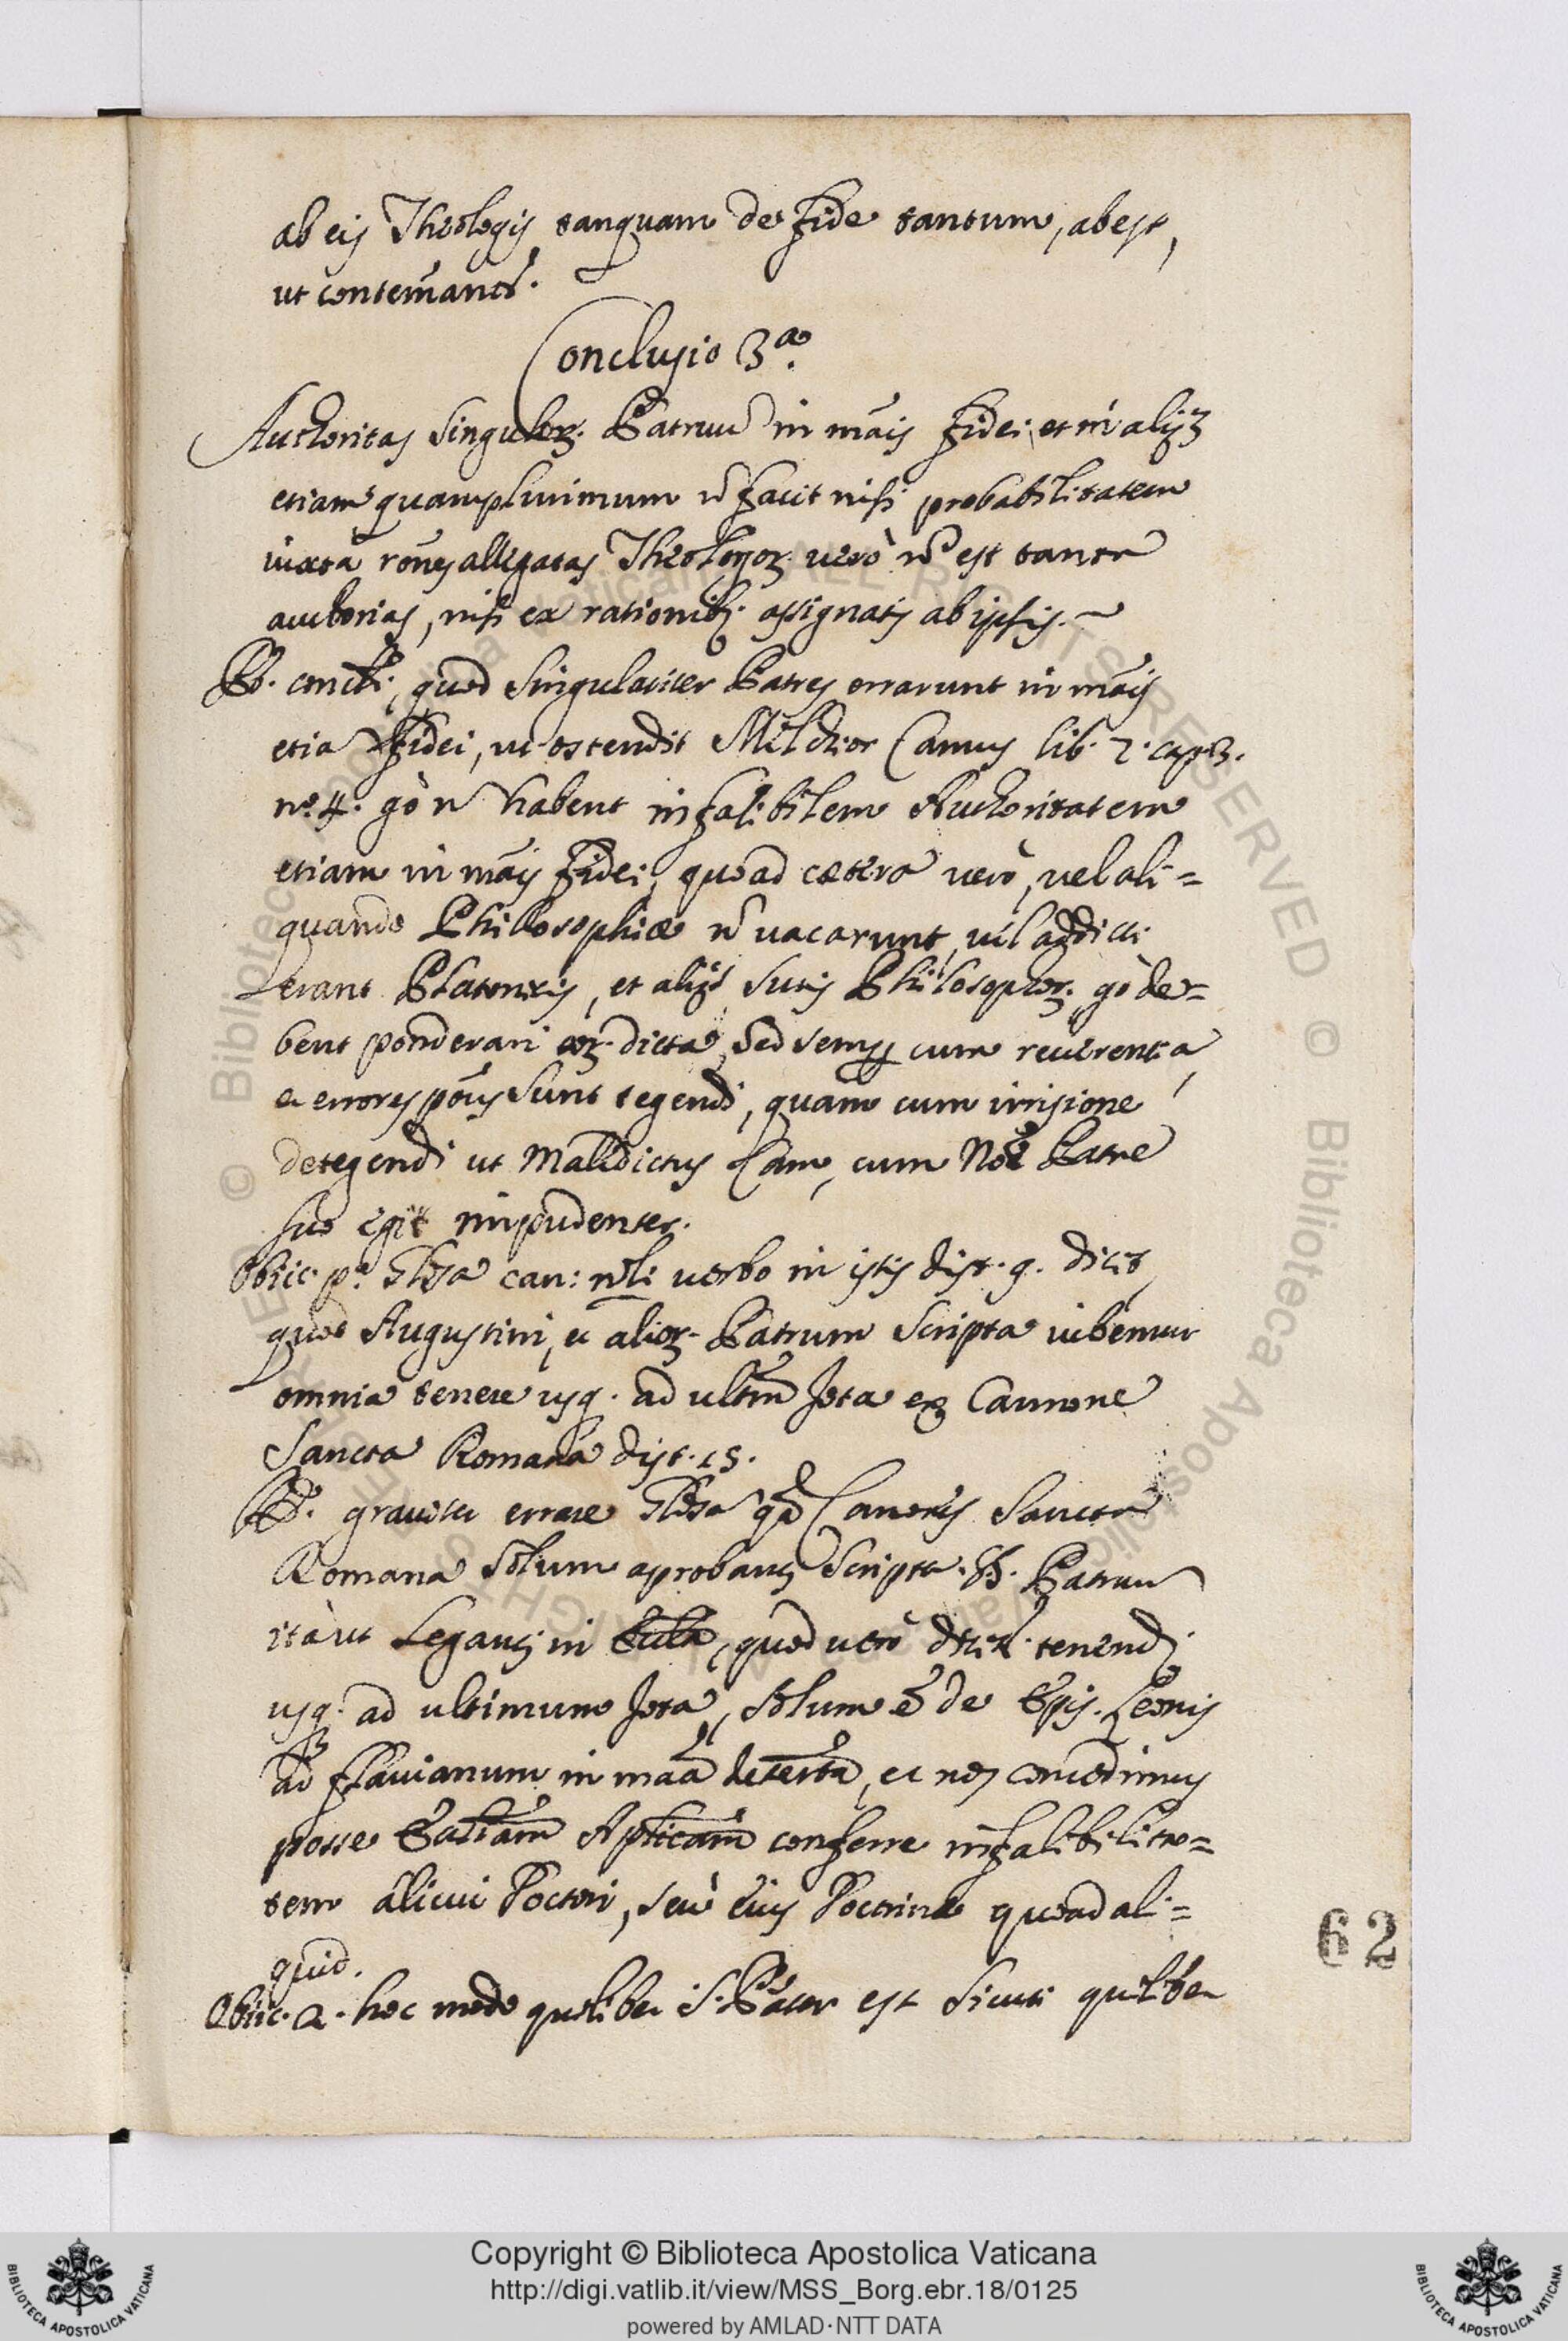 ab eis Theologis tanquam de Fide tantum, abest,
ut contem̃antr̃.
Conclusio 3ª.
Authoritas Singulorꝫ. Patrum in mãis Fidei, et in alijs
etiam quamplurimum ñ facit nisi probabilitatem
iuxta rões allegatas Theologorꝫ. verò ñ est tanta
authoritas, nisi ex rationibꝫ. assignatis ab ipsis.
Pb. concl. quod Singulariter Patres errarunt in mãis
etia Fidei, ut ostendit Milchior Canus lib. 7. cap. 3.
nº. 4. gò ñ habent infalibilem Authoritatem
etiam in mãis Fidei, quoad cætera verò, vel ali=
quando Philosophiæ ñ vacarunt, vel addicti
erant Platonicis, et alijs Sectis Philosophorꝫ. gò de=
bent ponderari eorꝫ. dicta, Sed semꝑ cum reverentia,
et errores poũs Sunt tegendi, quam cum irrisione
detegendi ut Maledictus Cam, cum Noè Patre
suo egit impudenter.
Obiic. pº. Glosa can: noli verbo in istis dist. 9. dicit,
quod Augustini, et aliorꝫ. Patrum Scripta iubemur
omnia tenere usq. ad ultm̃ Jota ex Cannone
Sancta Romana dist. 15.
Rd. graviter errare Glosa qd̃ Canonis Sancta
Romana Solum aprobans Scripta SS. Patrum
ità ut Legants in Eccla, quod verò dicit. tenendi
usq. ad ultimum Jota, Solum ẽ de Epis. Leonis
ad Flavianum in maã determ̃ta, et nos concedimus
posse Eccliam Aplicam̃ conferre infalibilita=
tem alicui Doctori, seù eius Doctrinæ quoad ali=
quid.
Obiic. 2. hoc modo quilibet S. Pater est Sicuti quilibet
62
Copyright © Biblioteca Apostolica Vaticana
http://digi.vatlib.it/view/MSS_Borg.ebr.18/0125
powered by AMLAD·NTT DATA
BIBLIOTECA APOSTOLICA VATICANA
BIBLIOTECA APOSTOLICA VATICANA